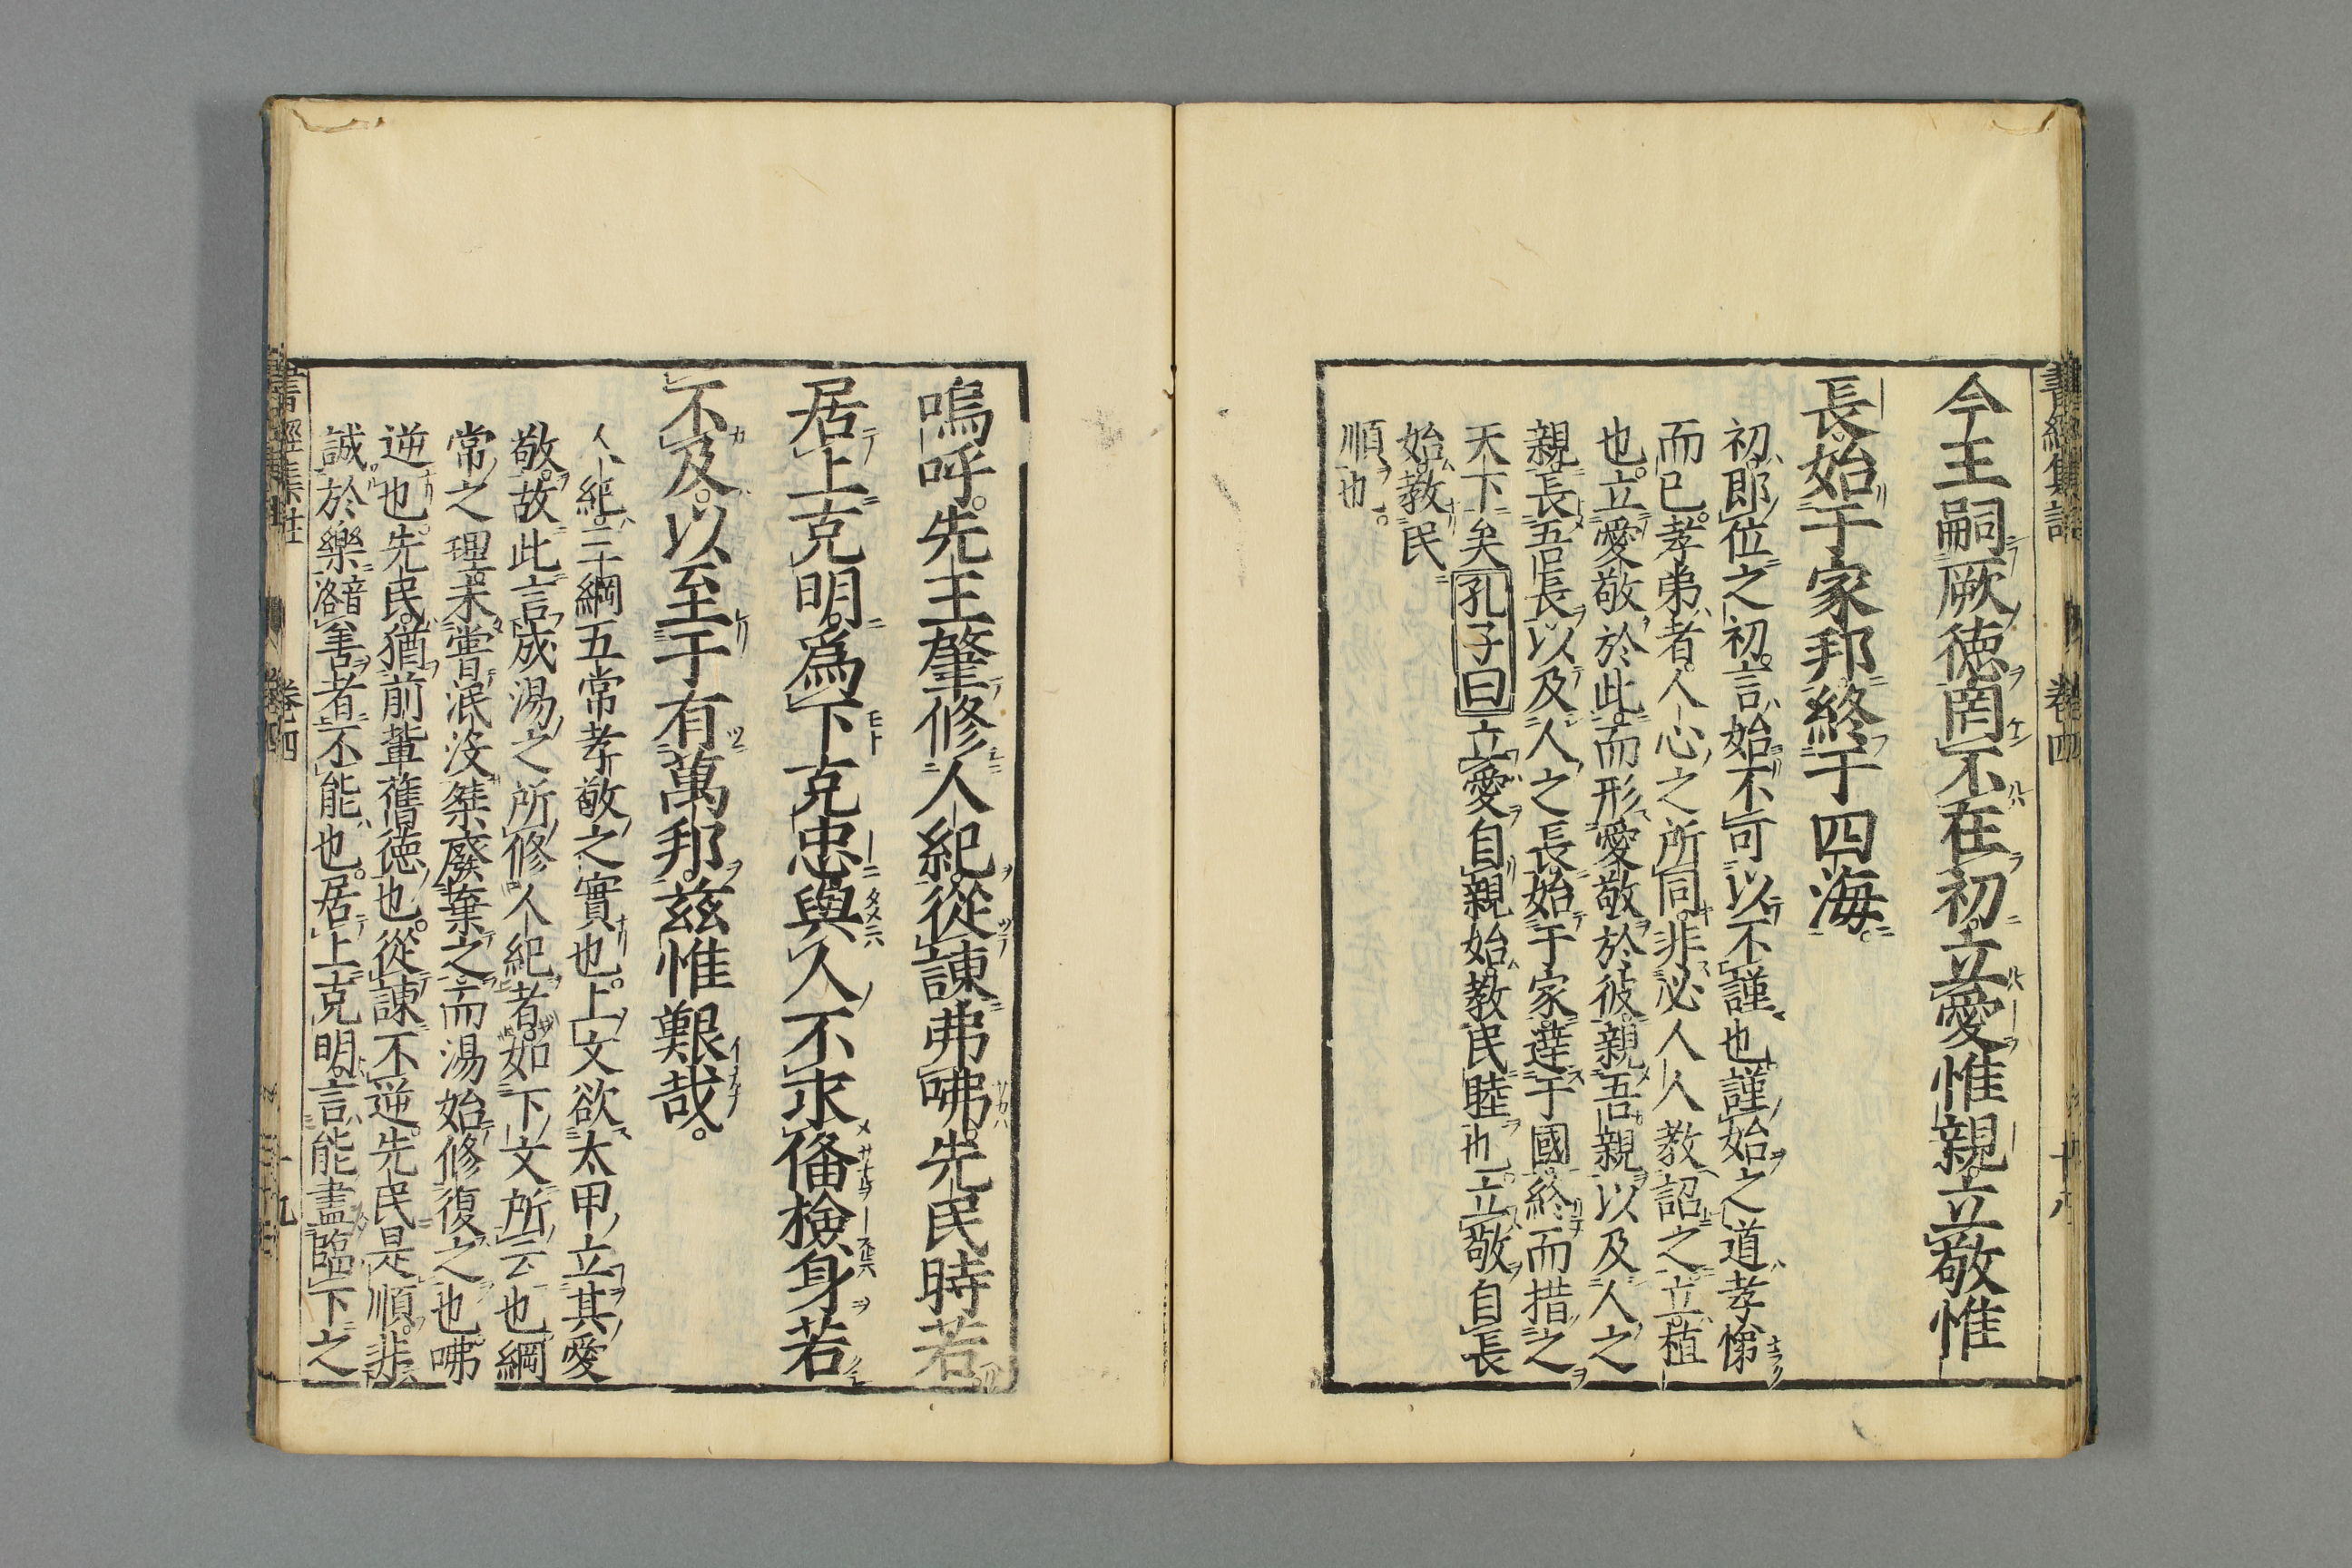 今王嗣厥徳罔不在初立愛惟親立敬惟
長始于家邦終于四海。
初即位之初。言始不可以不謹也謹始之道孝悌
而已。孝弟者。人心之所同。非必人人教詔之立。植
也。立愛敬於此。而形愛敬於彼。親吾親以及人之
親。長吾長以及人之長始于家達于國終而措之
天下矣孔子曰立愛自親始。教民睦也。立敬自長
始。教民
順也。
嗚呼。先王肇修人紀。從諫弗咈。先民時若
居上克明。爲下克忠與人不求備檢身若
不及。以至于有萬邦。茲惟艱哉。
人紀。三綱五常孝敬之實也。上文欲太甲立其愛
敬。故此言成湯之所修人紀者。如下文所云也綱
常之理。未嘗泯沒。桀廢棄之。而湯始修復之也。咈
逆也。先民。猶前輩舊徳也。從諫不逆。先民是順。非
誠於樂音洛善者不能也。居上克明。言能盡臨下之
書經集註 卷四 十八
書經集註 卷四 十九